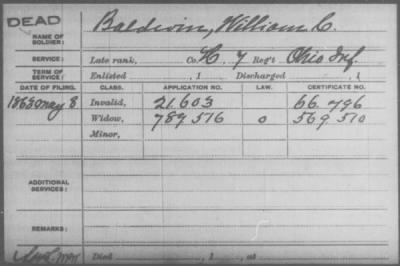 DEAD
NAME OF SOLDIER: Baldwin, William C.
SERVICE: Late rank, Co. H, 7 Reg't Ohio Inf.
TERM OF SERVICE: Enlisted , 1 Discharged , 1
DATE OF FILING. CLASS. APPLICATION NO. LAW. CERTIFICATE NO.
1863 May 8 Invalid, 21.603 66.796
Widow, 789,576 o 569,510
Minor,
ADDITIONAL SERVICES:
REMARKS:
Died , 1 , at